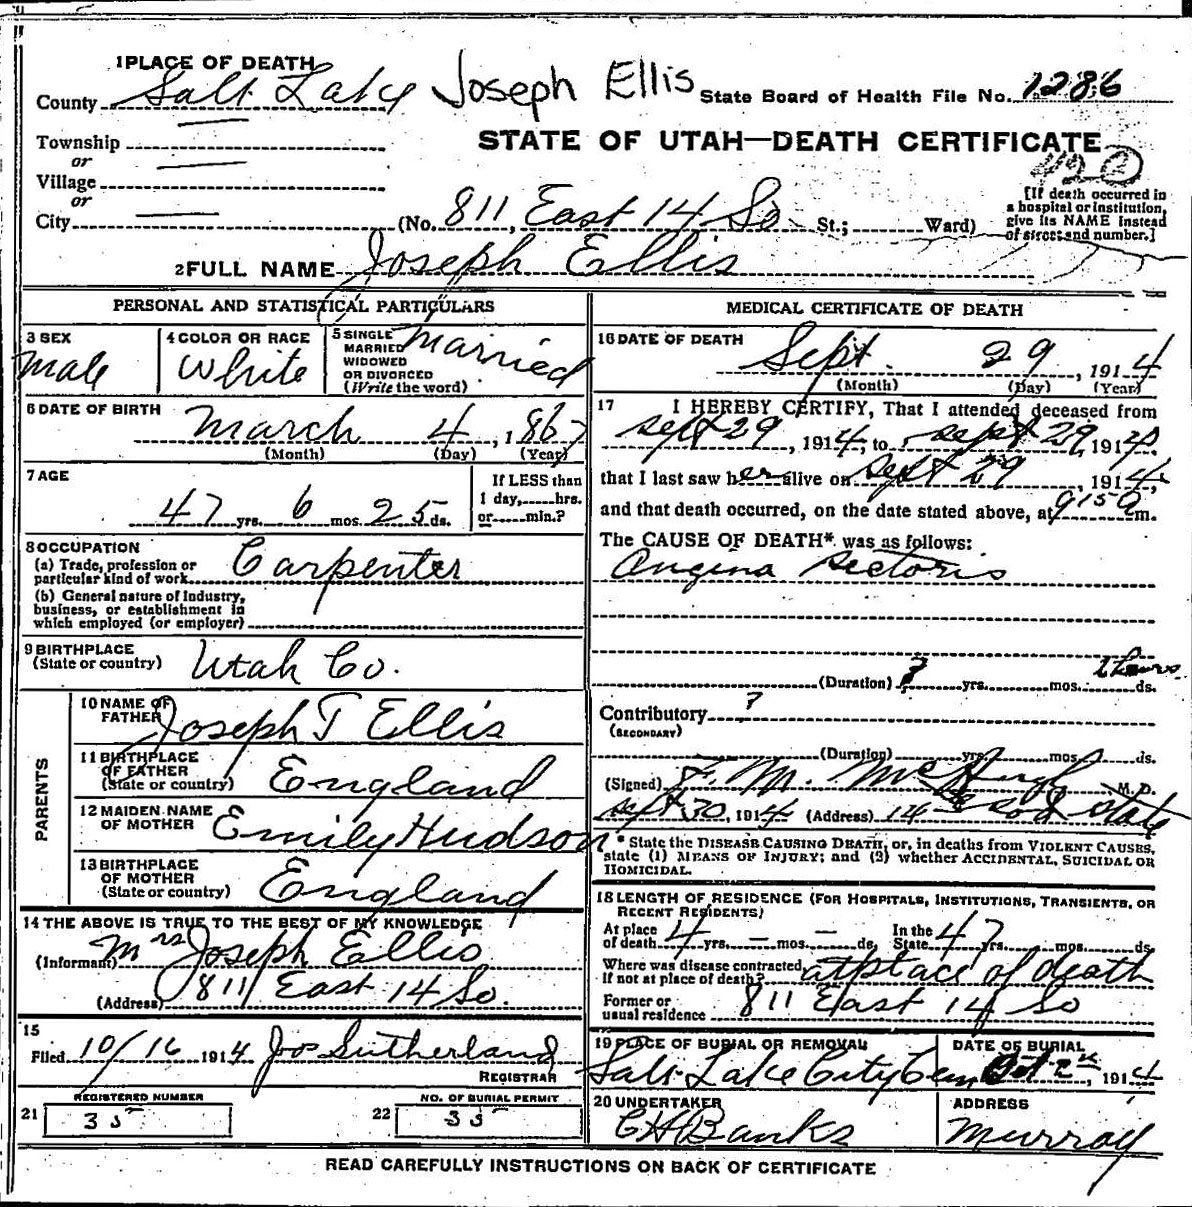 1 PLACE OF DEATH
Joseph Ellis
County Salt Lake
State Board of Health File No. 1286
Township
or
Village
or
STATE OF UTAH—DEATH CERTIFICATE
[If death occurred in
a hospital or institution,
give its NAME instead
of street and number.]
City (No. 811 East 14 So St.; Ward)
2 FULL NAME Joseph Ellis
PERSONAL AND STATISTICAL PARTICULARS
3 SEX
Male
4 COLOR OR RACE
White
5 SINGLE
MARRIED
WIDOWED
OR DIVORCED
(Write the word)
Married
6 DATE OF BIRTH
March 4, 1867
(Month) (Day) (Year)
7 AGE
47 yrs. 6 mos. 25 ds.
If LESS than
1 day, hrs.
or min.?
8 OCCUPATION
(a) Trade, profession or
particular kind of work
Carpenter
(b) General nature of Industry,
business, or establishment in
which employed (or employer)
9 BIRTHPLACE
(State or country)
Utah Co.
PARENTS
10 NAME OF
FATHER
Joseph T Ellis
11 BIRTHPLACE
OF FATHER
(State or country)
England
12 MAIDEN NAME
OF MOTHER
Emily Hudson
13 BIRTHPLACE
OF MOTHER
(State or country)
England
14 THE ABOVE IS TRUE TO THE BEST OF MY KNOWLEDGE
(Informant) Mrs Joseph Ellis
(Address) 811 East 14 So.
15
Filed 10/16 1914 Jos Sutherland
REGISTRAR
21
REGISTERED NUMBER
35
22
NO. OF BURIAL PERMIT
35
MEDICAL CERTIFICATE OF DEATH
16 DATE OF DEATH
Sept. 29, 1914
(Month) (Day) (Year)
17 I HEREBY CERTIFY, That I attended deceased from
Sept 29, 1914, to Sept 29, 1914,
that I last saw her alive on Sept 29 1914,
and that death occurred, on the date stated above, at 915 a m.
The CAUSE OF DEATH* was as follows:
Angina Pectoris
(Duration) ? yrs. mos. 2 hours ds.
Contributory ?
(SECONDARY)
(Duration) yrs. mos. ds.
(Signed) F. M. McHugh M. D.
Sept 30, 1914 (Address) 14 So & State
* State the DISEASE CAUSING DEATH, or, in deaths from VIOLENT CAUSES,
state (1) MEANS OF INJURY; and (2) whether ACCIDENTAL, SUICIDAL OR
HOMICIDAL.
18 LENGTH OF RESIDENCE (FOR HOSPITALS, INSTITUTIONS, TRANSIENTS, OR
RECENT RESIDENTS)
At place
of death 4 yrs. — mos. — ds.
In the
State 47 yrs. mos. ds.
Where was disease contracted,
If not at place of death? at place of death
Former or
usual residence 811 East 14 So
19 PLACE OF BURIAL OR REMOVAL
Salt Lake City Cem
DATE OF BURIAL
Oct 2, 1914
20 UNDERTAKER
C H Banks
ADDRESS
Murray
READ CAREFULLY INSTRUCTIONS ON BACK OF CERTIFICATE